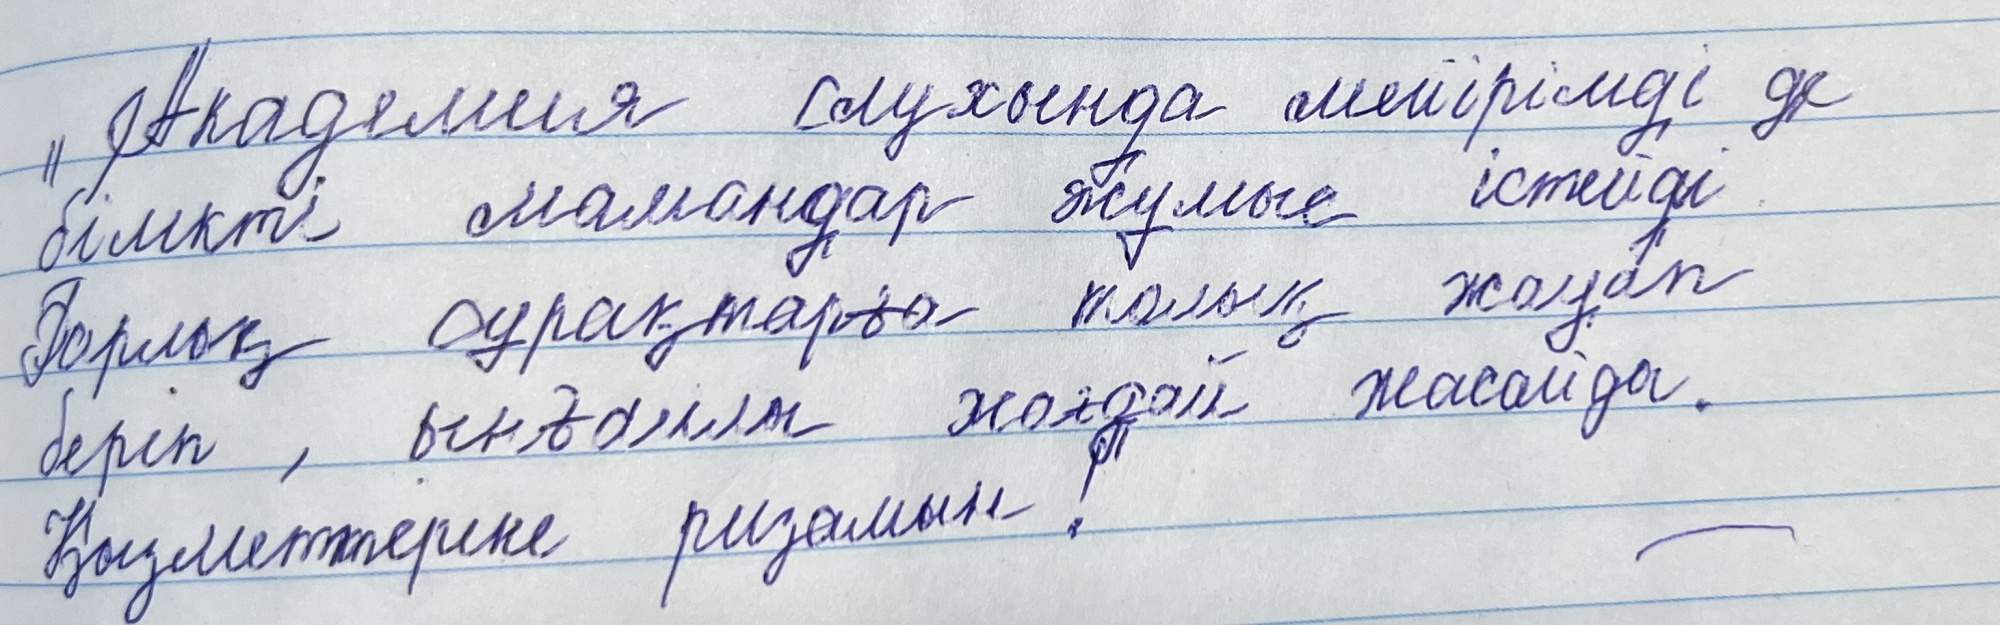 „Академия Слухында мейірімді де
білікті мамандар жұмыс істейді
Барлық сұрақтарға толық жауап
беріп, ынғайлы жағдай жасайды.
Қызметтеріне ризамын!